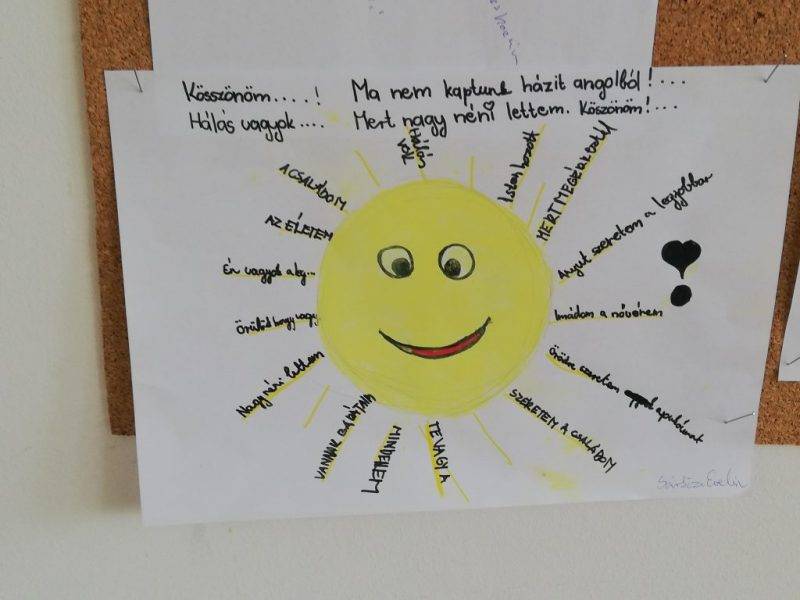 Kösszönöm....! Ma nem kaptunk házit angolból!...
Hálás vagyok.... Mert nagy néni lettem. Köszönöm!...
HÁLÁS
VOK
Isten hozott
MERT MEGSZÜLETTÉL
Anyut szeretem a legjobban
Imádom a nővérem
Örökre szeretem apukámat
SZERETEM A CSALÁDOM
TE VAGY A
MINDENEM
VANNAK BARÁTAIM
Nagynéni lettem
Örülök hogy vagy
Én vagyok a leg...
AZ ÉLETEM
A CSALÁDOM
Evelin